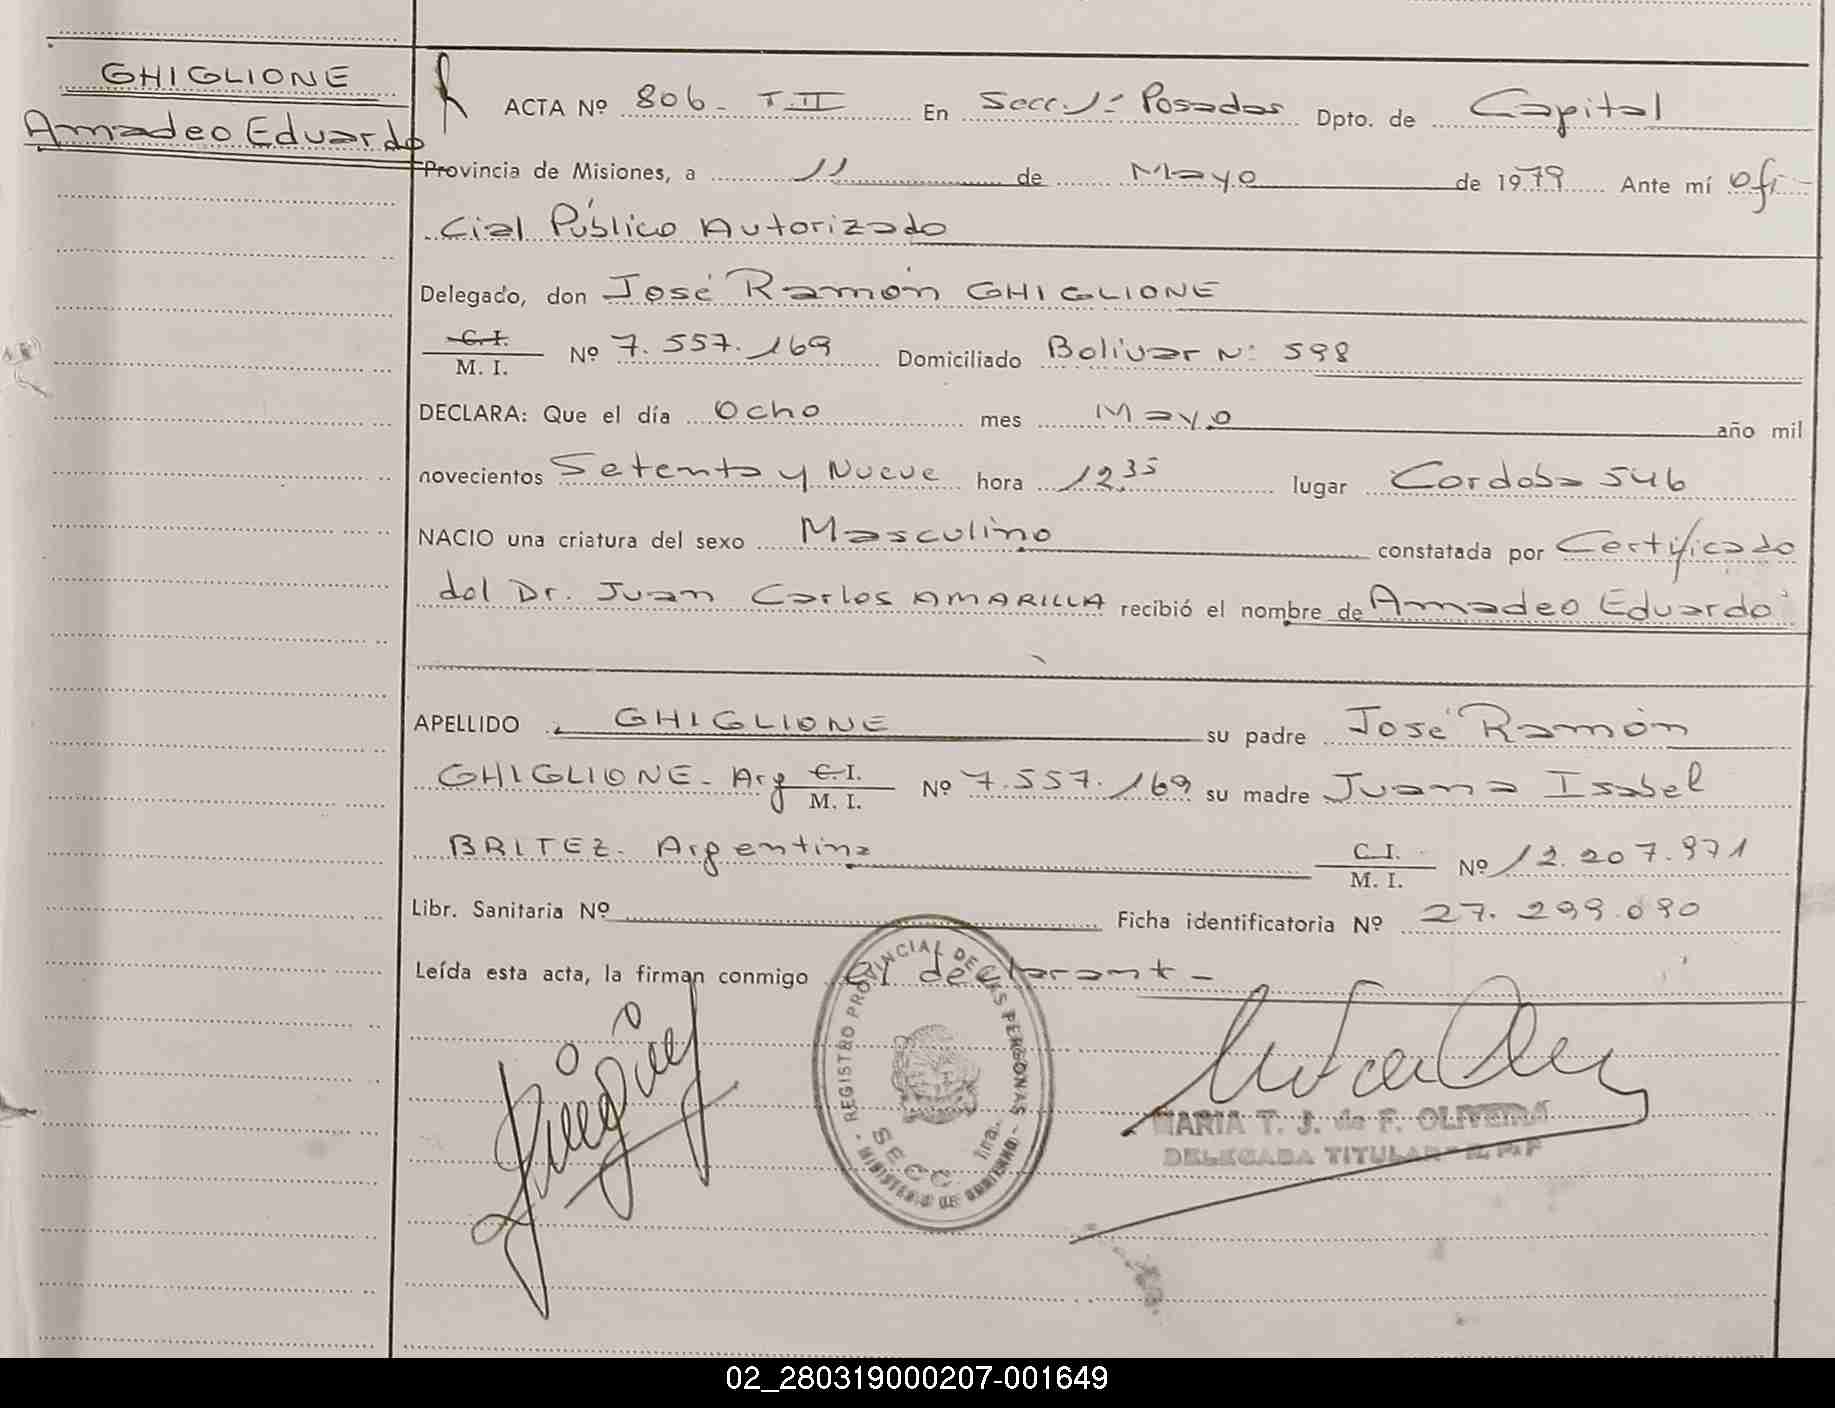 GHIGLIONE
Amadeo Eduardo
ACTA Nº 806 - T II En Secc. 1ª Posadas Dpto. de Capital
Provincia de Misiones, a 11 de Mayo de 1979 Ante mí Ofi-
cial Público Autorizado
Delegado, don José Ramón GHIGLIONE
C. I.
M. I. Nº 7.557.169 Domiciliado Bolivar Nº 598
DECLARA: Que el día Ocho mes Mayo año mil
novecientos Setenta y Nueve hora 12,35 lugar Cordoba 546
NACIO una criatura del sexo Masculino constatada por Certificado
del Dr. Juan Carlos AMARILLA recibió el nombre de Amadeo Eduardo
APELLIDO GHIGLIONE su padre José Ramón
GHIGLIONE - Arg C. I.
M. I. Nº 7.557.169 su madre Juana Isabel
BRITEZ - Argentina C. I.
M. I. Nº 12.207.971
Libr. Sanitaria Nº Ficha identificatoria Nº 27.299.090
Leída esta acta, la firman conmigo el declarante -
REGISTRO PROVINCIAL DE LAS PERSONAS
SECC. 1ra.
- MINISTERIO DE GOBIERNO -
MARIA T. J. de F. OLIVEIRA
DELEGADA TITULAR
02_280319000207-001649